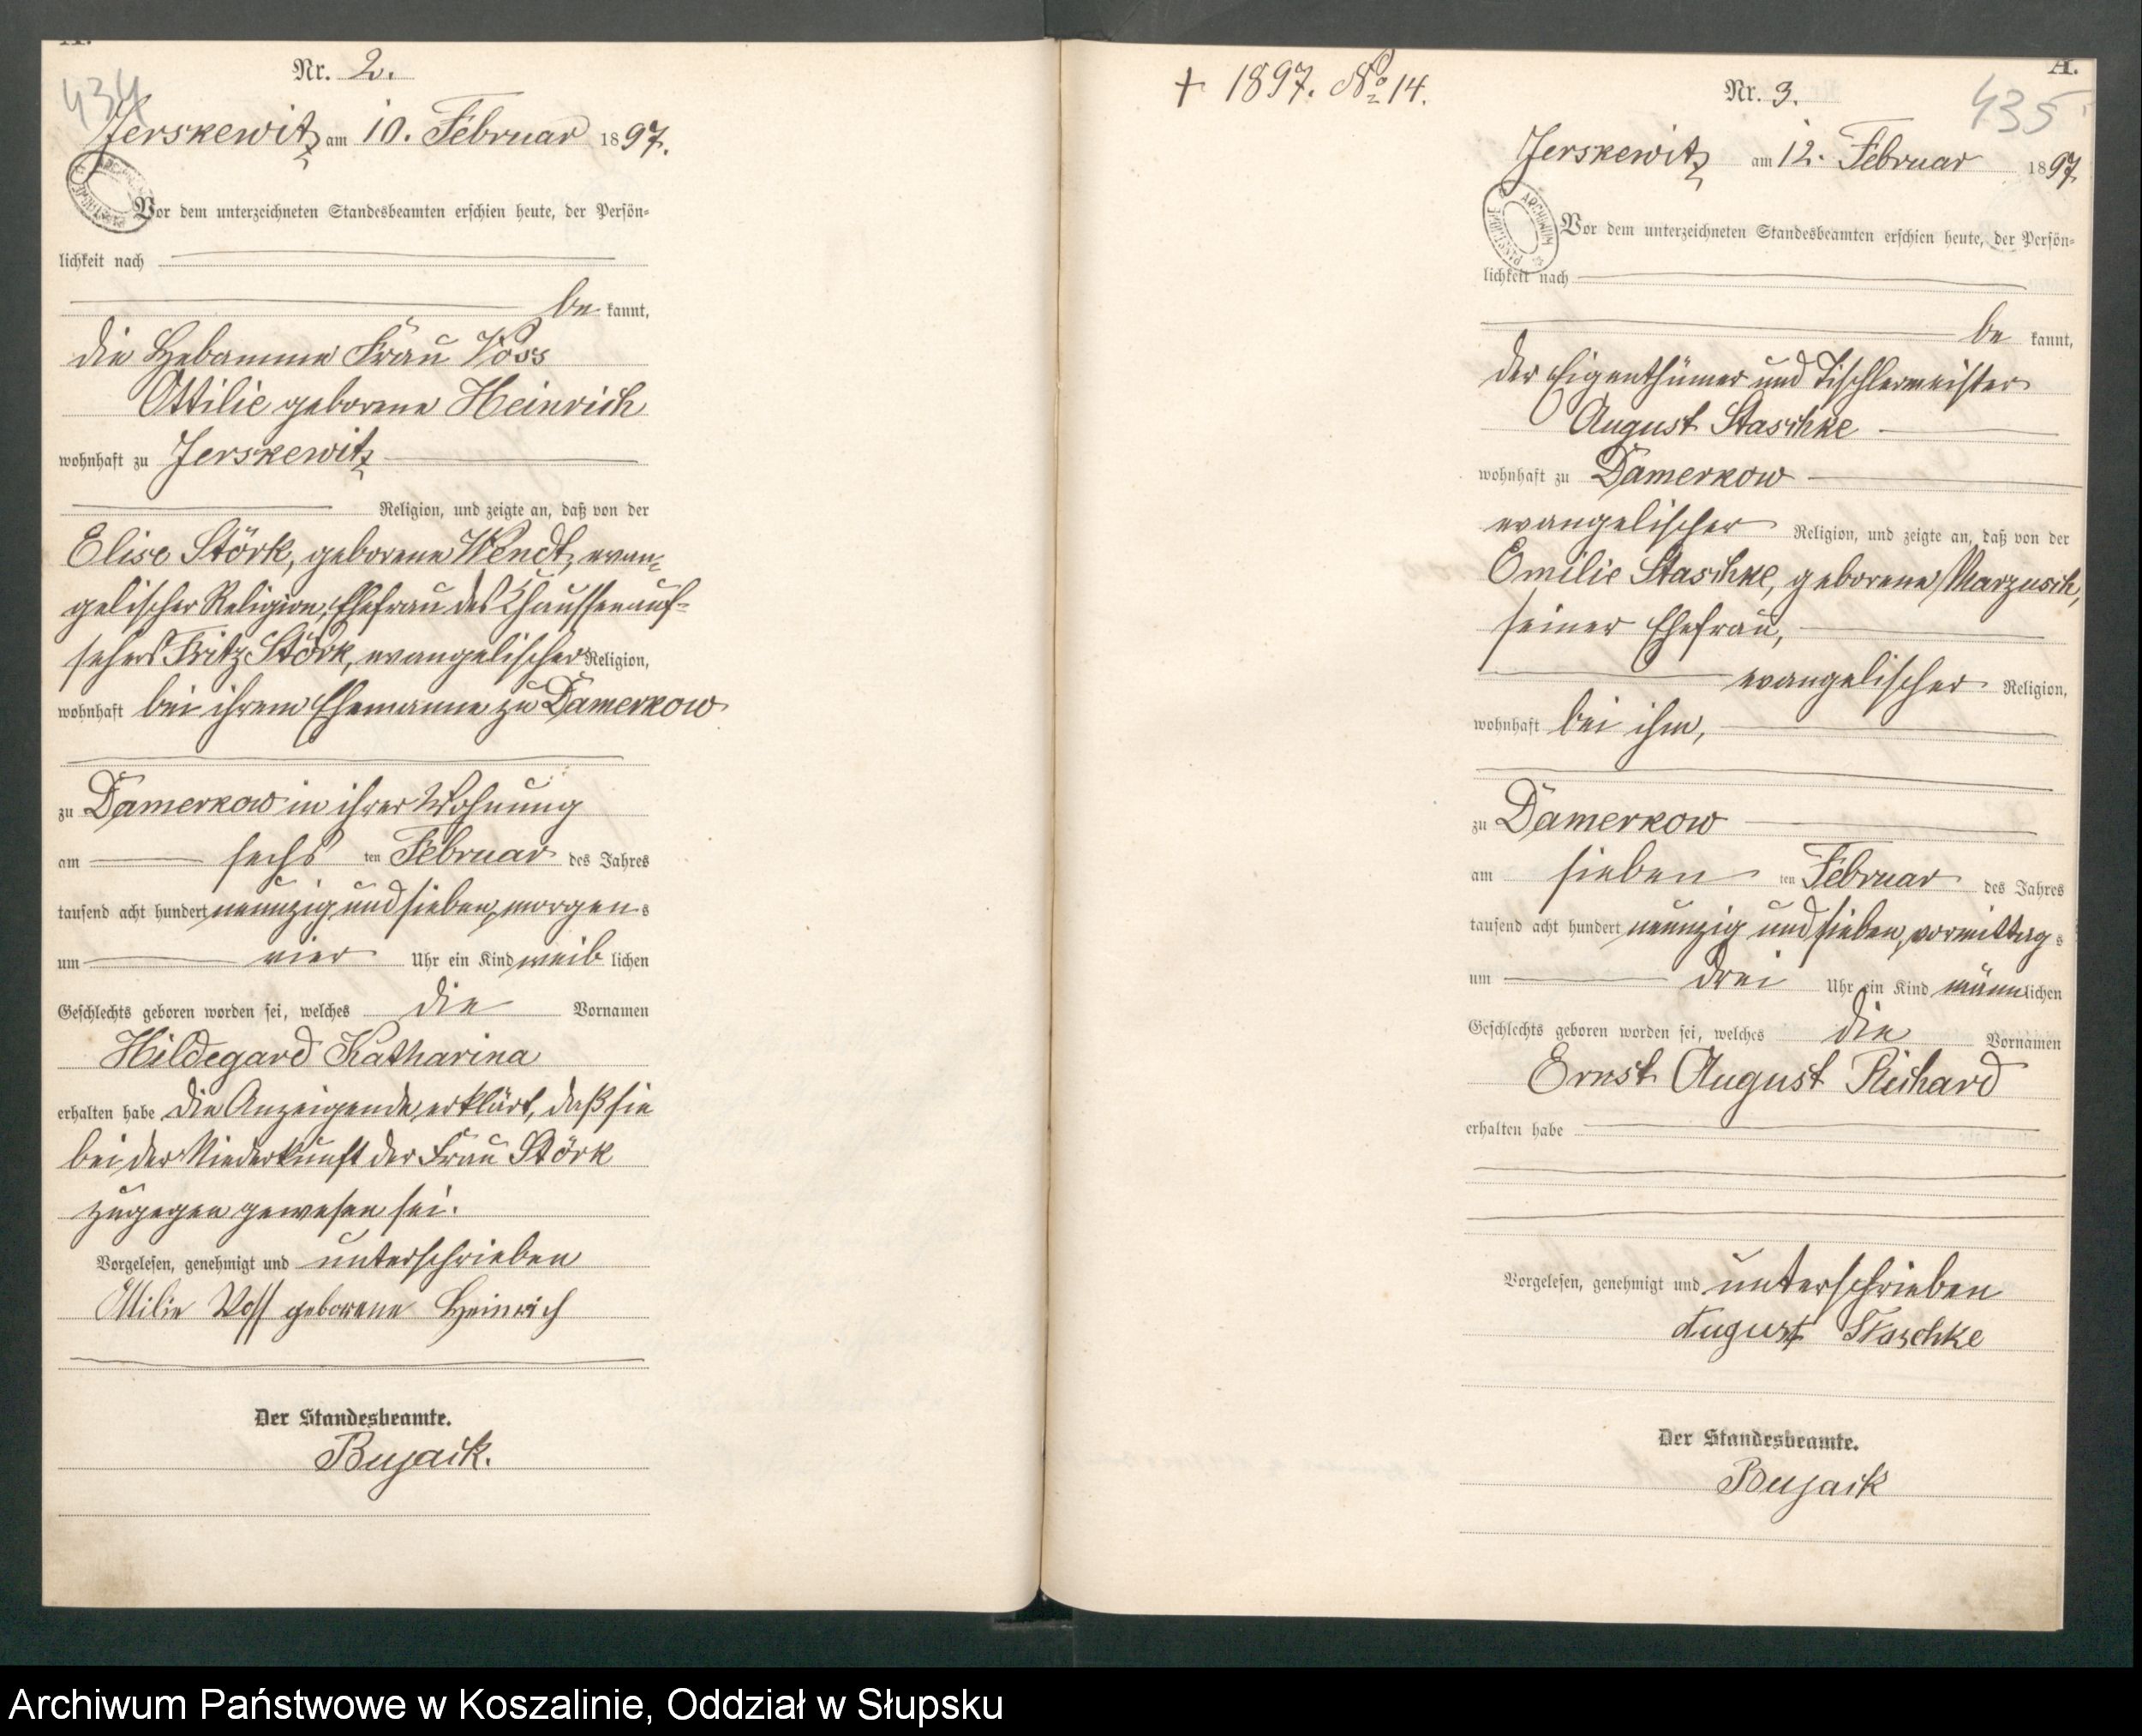 A.
434
Nr. 2.
Jerskewitz am 10. Februar 1897.
Vor dem unterzeichneten Standesbeamten erschien heute, der Persön-
lichkeit nach
be kannt,
die Hebamme Frau Voss
Ottilie geborene Heinrich
wohnhaft zu Jerskewitz
Religion, und zeigte an, daß von der
Elise Störk, geborene Wendt, evan-
gelischer Religion, Ehefrau des Chausseeauf-
sehers Fritz Störk, evangelischer Religion,
wohnhaft bei ihrem Ehemanne zu Damerkow
zu Damerkow in ihrer Wohnung
am sechs ten Februar des Jahres
tausend acht hundert neunzig und sieben, morgens
um vier Uhr ein Kind weiblichen
Geschlechts geboren worden sei, welches die Vornamen
Hildegard Katharina
erhalten habe die Anzeigende erklärt, daß sie
bei der Niederkunft der Frau Störk
zugegen gewesen sei.
Vorgelesen, genehmigt und unterschrieben
Ottilie Voss geborene Heinrich
Der Standesbeamte.
Bujack.
+ 1897. No 14.
A.
435
Nr. 3.
Jerskewitz am 12. Februar 1897
ARCHIWUM PAŃSTWOWE
Vor dem unterzeichneten Standesbeamten erschien heute, der Persön-
lichkeit nach
be kannt,
der Eigenthümer und Tischlermeister
August Staschke
wohnhaft zu Damerkow
evangelischer Religion, und zeigte an, daß von der
Emilie Staschke, geborene Marzusch,
seiner Ehefrau,
evangelischer Religion,
wohnhaft bei ihm,
zu Damerkow
am sieben ten Februar des Jahres
tausend acht hundert neunzig und sieben, vormittags
um drei Uhr ein Kind männlichen
Geschlechts geboren worden sei, welches die Vornamen
Ernst August Richard
erhalten habe
Vorgelesen, genehmigt und unterschrieben
August Staschke
Der Standesbeamte.
Bujack
Archiwum Państwowe w Koszalinie, Oddział w Słupsku